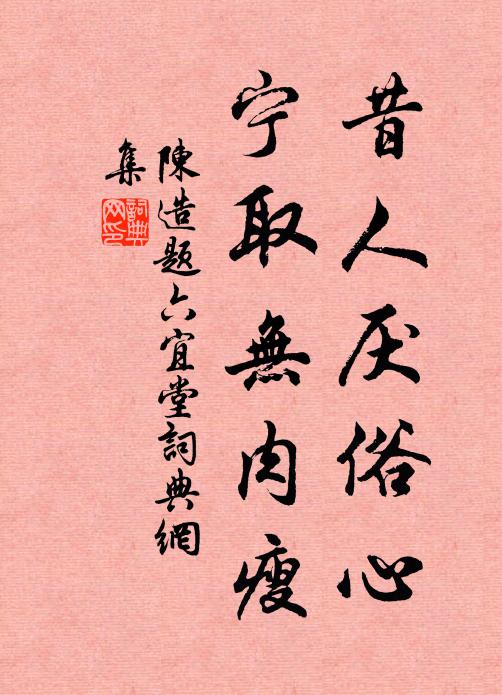 昔人厌俗心
宁取無肉瘦
陳造题六宜堂詞典網
集
詞典網印